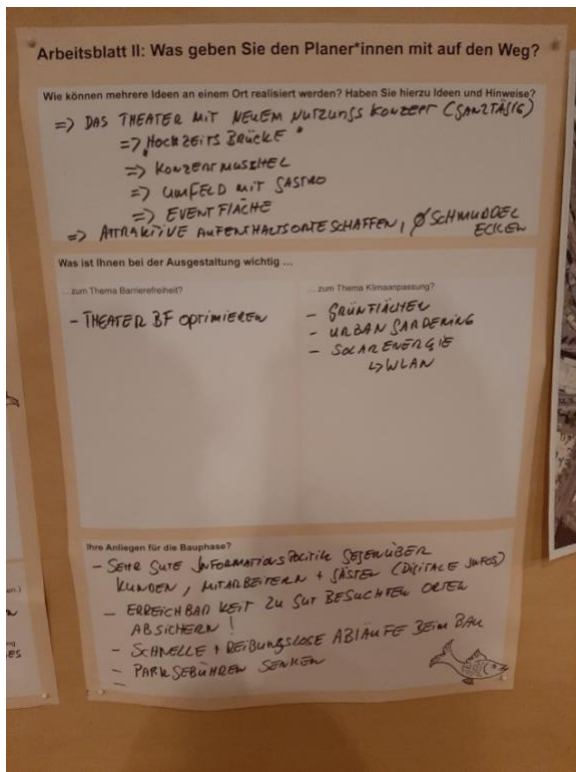 Arbeitsblatt II: Was geben Sie den Planer*innen mit auf den Weg?
Wie können mehrere Ideen an einem Ort realisiert werden? Haben Sie hierzu Ideen und Hinweise?
=> DAS THEATER MIT NEUEM NUTZUNGS KONZEPT (GANZTÄGIG)
=> "HOCHZEITS BRÜCKE"
=> KONZERTMUSCHEL
=> UMFELD MIT GASTRO
=> EVENTFLÄCHE
=> ATTRAKTIVE AUFENTHALTSORTE SCHAFFEN, Ø SCHMUDDEL
ECKEN
Was ist Ihnen bei der Ausgestaltung wichtig ...
... zum Thema Barrierefreiheit?
- THEATER BF OPTIMIEREN
... zum Thema Klimaanpassung?
- GRÜNFLÄCHEN
- URBAN GARDENING
- SOLARENERGIE
↳ WLAN
Ihre Anliegen für die Bauphase?
- SEHR GUTE INFORMATIONSPOLITIK GEGENÜBER
KUNDEN, MITARBEITERN + GÄSTEN (DIGITALE INFOS)
- ERREICHBARKEIT ZU GUT BESUCHTEN ORTEN
ABSICHERN!
- SCHNELLE + REIBUNGSLOSE ABLÄUFE BEIM BAU
- PARKGEBÜHREN SENKEN
-